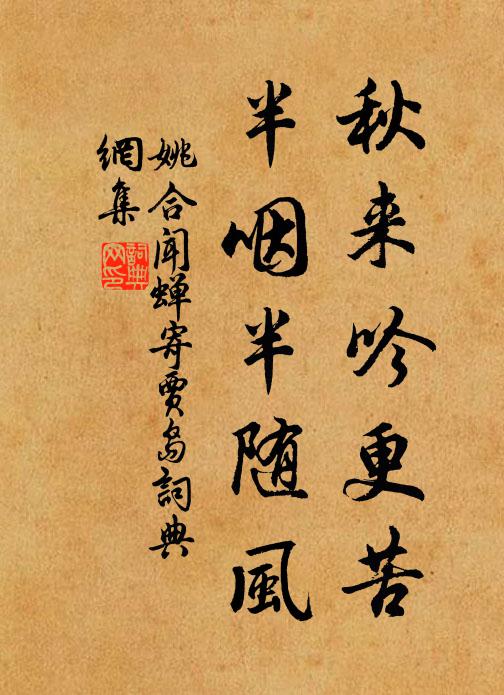 秋来吟更苦
半咽半随風
姚合闻蝉寄賈島詞典
網集
詞典
网印